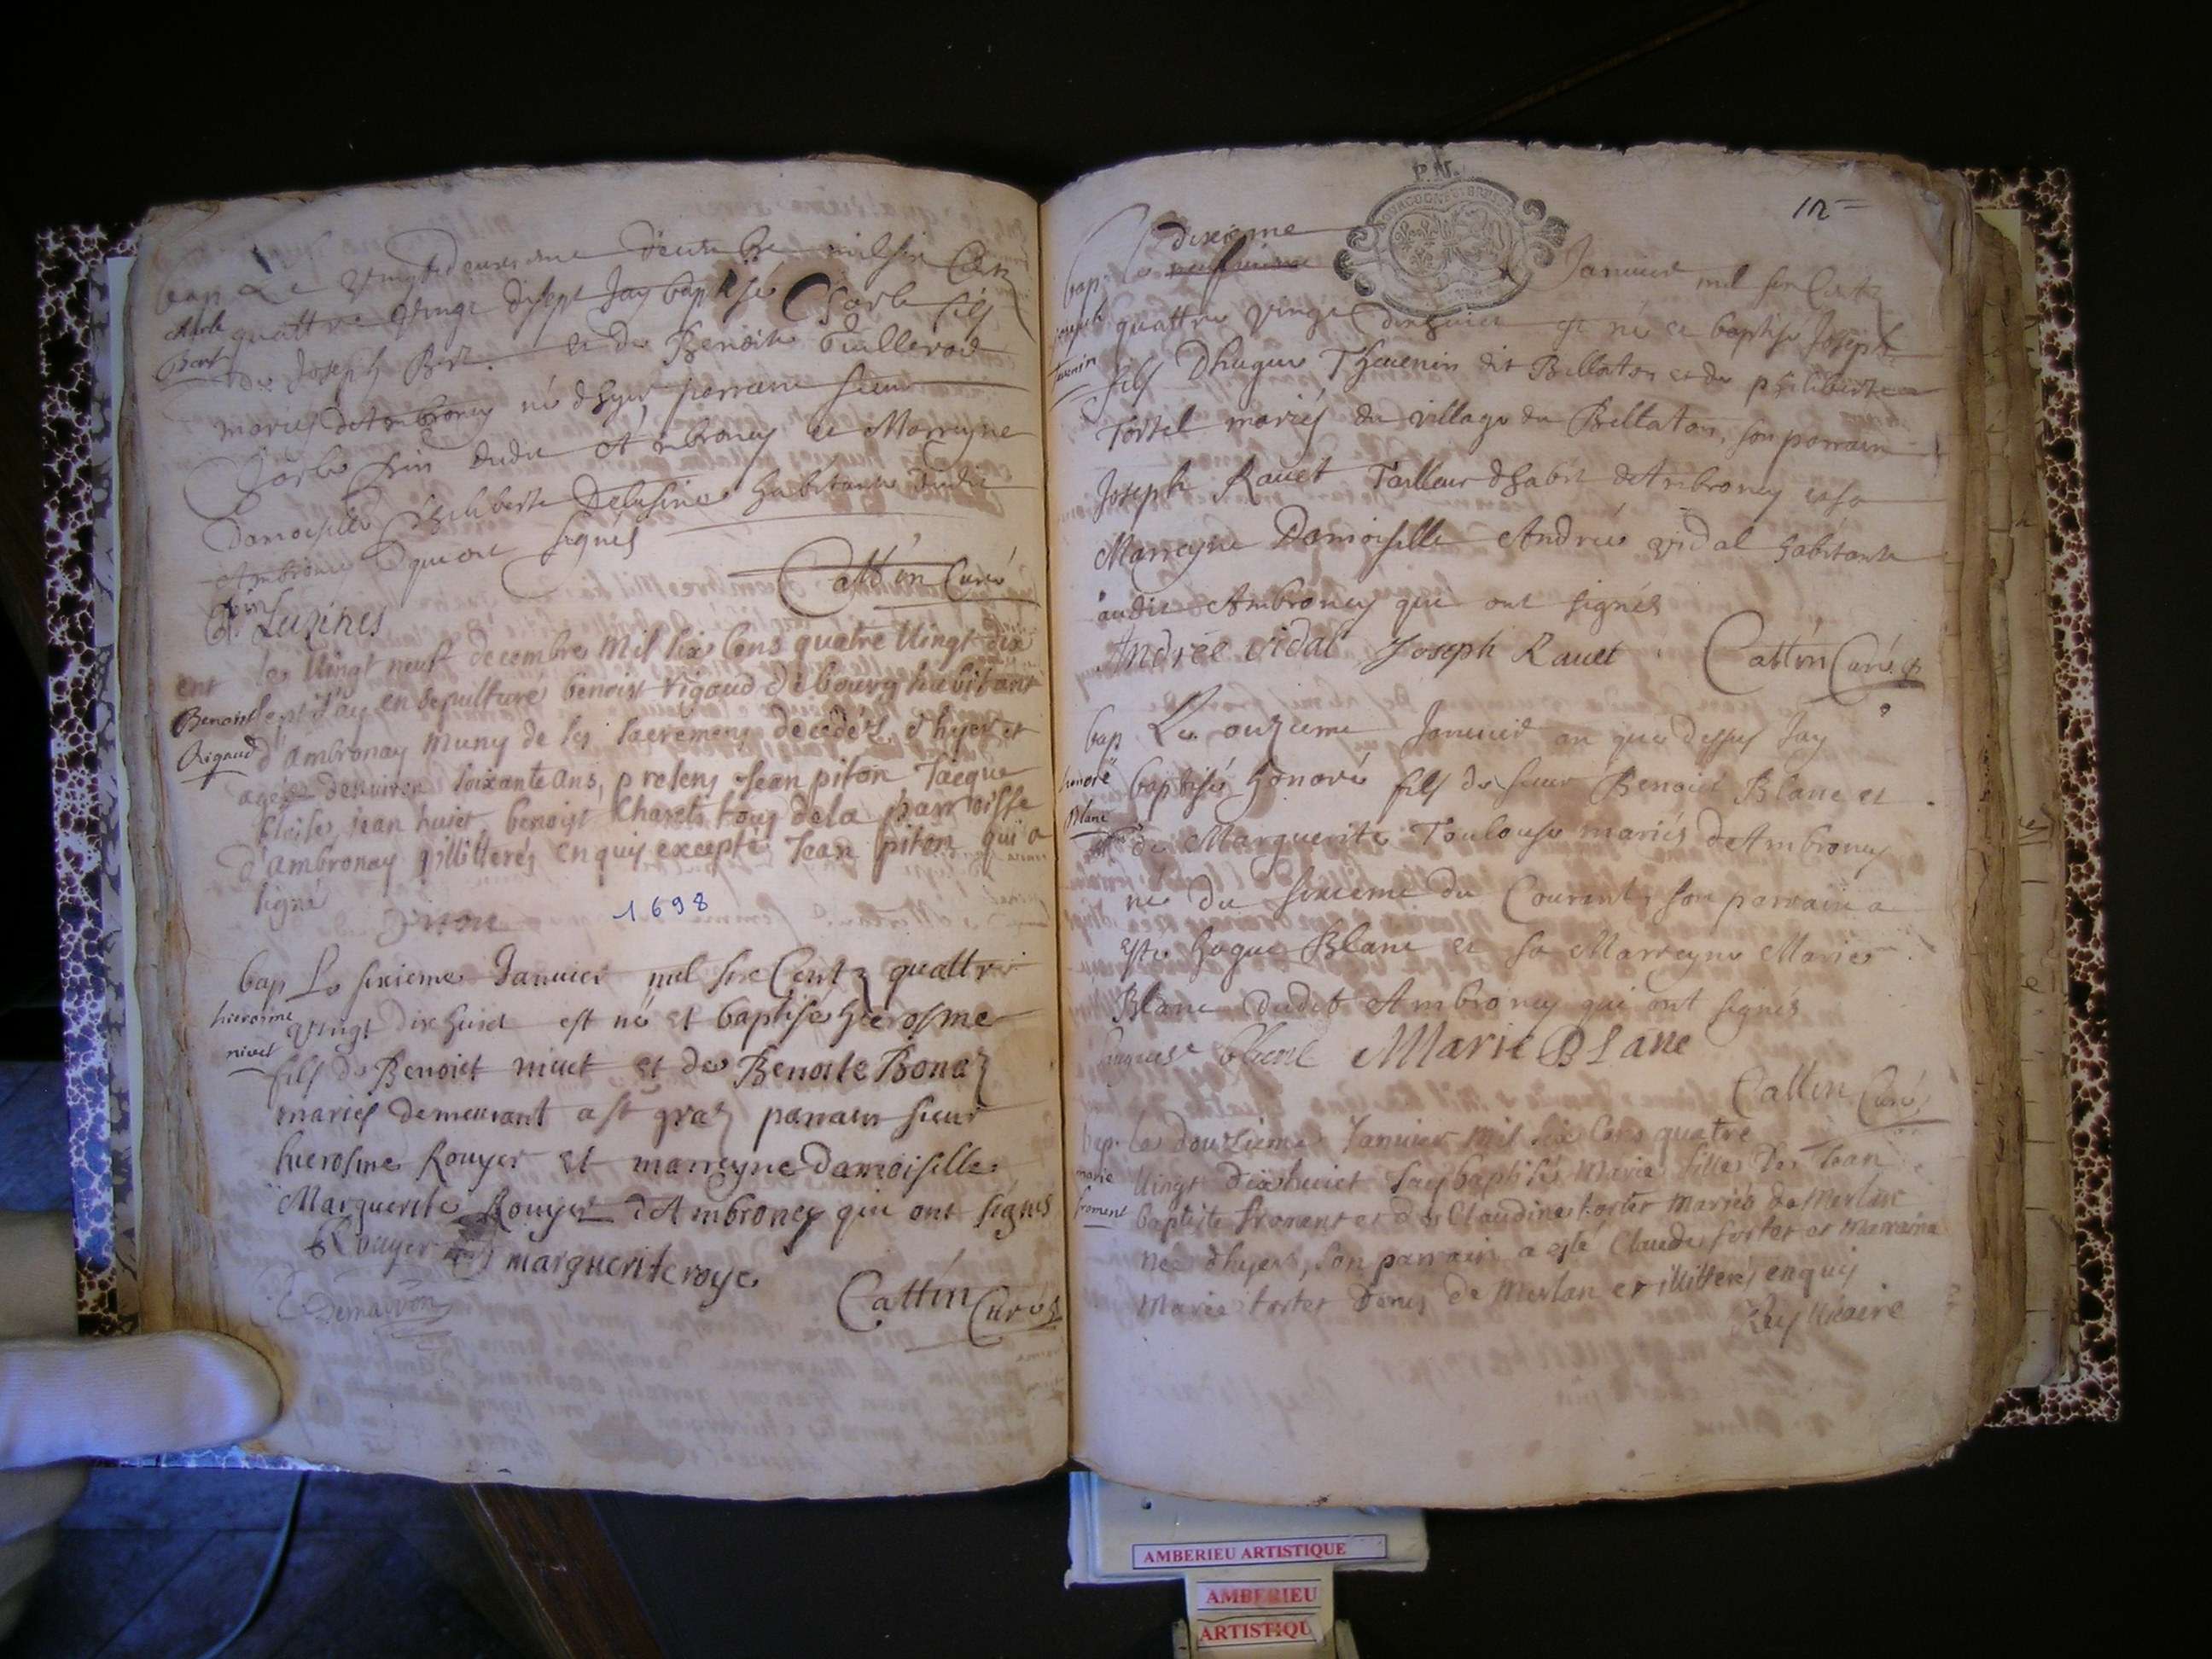 bap Le vingtdeuxieme decembre mil six Centz
charle quattre vingt disept Jay baptisé Charle fils
Bert de Joseph Bert et de Benoite
mariés dAmbroney né dhyer parrain sieur
Charles dudit Ambroney et Marreyne
Damoiselle Philiberte Delusine habitante dudit
Ambroney qui ont signés
Cattin Curé
Luzines
ent les vingt neuf decembre mil six Cens quatre vingt dix
Benoist sept J'ay en sepulture benoist rigaud de bourg habitant
Rigaud d'ambronay muny de ses sacremens decedé d'hyer et
agé denviron soixante ans, presens Jean piton Jacque
jean huiet benoist tous de la parroisse
d'ambronay illitterés enquis excepté Jean piton qui a
signé
piton
1698
bap Le sixieme Janvier mil six Centz quattre
hierosme vingt dix huict est né et baptisé hierosme
nivet fils de Benoict nivet et de Benoite Bonaz
mariés demeurant a st graz parrain sieur
hierosme Rouyer et marreyne damoiselle
Marguerite Rouyer dAmbroney qui ont signés
Rouyer marguerite roye
Cattin Curé
Demarron
P.N.
12
dixieme
bap Le neufvieme Janvier mil six Centz
joseph quattre vingt dixhuict est né et baptisé Joseph
tevenin fils Dhugue Thevenin dit Bellaton et de philiberte
Tortel mariés du village du Bellaton, son parrain
Joseph Ravet Tailleur dhabit dAmbroney et sa
Marreyne Damoiselle Andrée vidal habitante
audit Ambroney qui ont signés
Andrée vidal Joseph Rauet Cattin Curé
bap Le onzieme Janvier an que dessus Jay
honoré baptisé honoré fils de sieur Benoict Blanc et
Blanc de Marguerite Toulouse mariés dAmbroney
né du sixieme du Courant, son parrain a
esté hugue Blanc et sa Marreyne Marie
Blanc dudit Ambroney qui ont signés
blanc Marie BLanc
Cattin Curé
bap. Le douzieme Janvier mil six Cens quatre
marie vingt dixhuict Jay baptisé Marie fille de Jean
froment baptiste froment et de Claudine torter mariés de Merlan
née dhyer, son parrain a esté Claude torter et marraine
Marie torter tous de Merlan et illitterés enquis
Vicaire
AMBERIEU ARTISTIQUE
AMBERIEU
ARTISTIQU